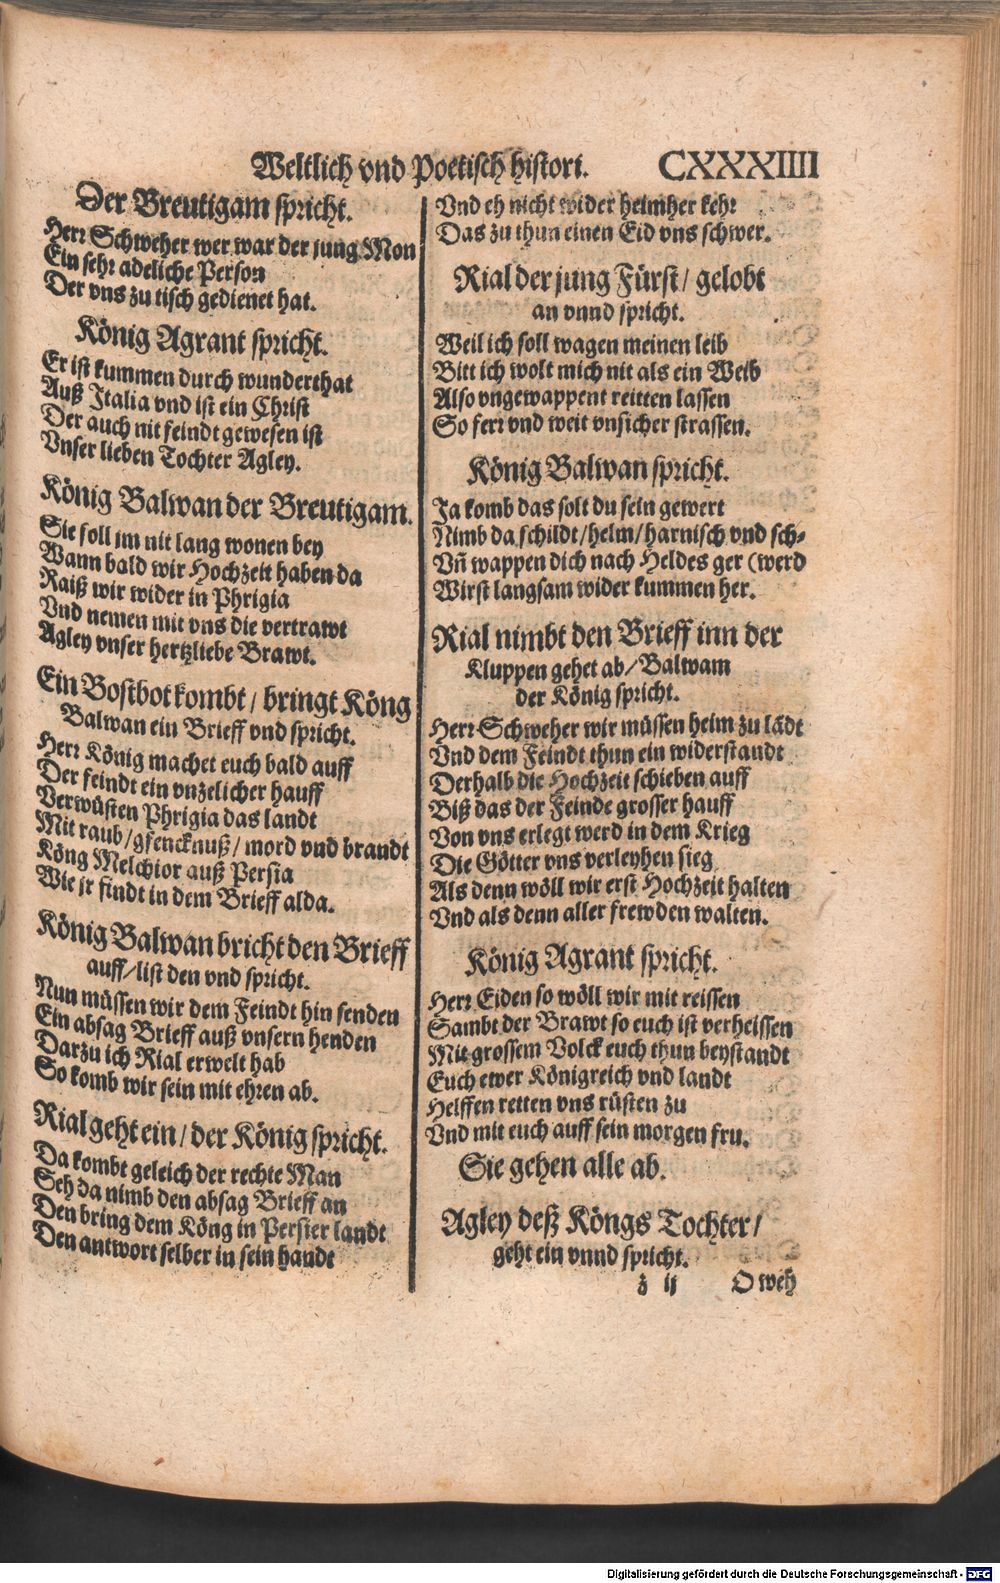 Weltlich vnd Poetisch histori. CXXXIIII
Der Breutigam spricht.
Herr Schweher wer war der jung Mon
Ein sehr adeliche Person
Der vns zu tisch gedienet hat.
König Agrant spricht.
Er ist kummen durch wunderthat
Auß Italia vnd ist ein Christ
Der auch nit feindt gewesen ist
Vnser lieben Tochter Agley.
König Balwan der Breutigam.
Sie soll im nit lang wonen bey
Wann bald wir Hochzeit haben da
Raiß wir wider in Phrigia
Vnd nemen mit vns die vertrawt
Agley vnser hertzliebe Brawt.
Ein Bostbot kombt / bringt Köng
Balwan ein Brieff vnd spricht.
Herr König machet euch bald auff
Der feindt ein vnzelicher hauff
Verwüsten Phrigia das landt
Mit raub / gfencknuß / mord vnd brandt
Köng Melchior auß Persia
Wie jr findt in dem Brieff alda.
König Balwan bricht den Brieff
auff / list den vnd spricht.
Nun müssen wir dem Feindt hin senden
Ein absag Brieff auß vnsern henden
Darzu ich Rial erwelt hab
So komb wir sein mit ehren ab.
Rial geht ein / der König spricht.
Da kombt geleich der rechte Man
Seh da nimb den absag Brieff an
Den bring dem Köng in Persier landt
Den antwort selber in sein handt
Vnd eh nicht wider heimher kehr
Das zu thun einen Eid vns schwer.
Rial der jung Fürst / gelobt
an vnnd spricht.
Weil ich soll wagen meinen leib
Bitt ich wolt mich nit als ein Weib
Also vngewappent reitten lassen
So ferr vnd weit vnsicher strassen.
König Balwan spricht.
Ja komb das solt du sein gewert
Nimb da schildt / helm / harnisch vnd sch-
Vñ wappen dich nach Heldes ger (werd
Wirst langsam wider kummen her.
Rial nimbt den Brieff inn der
Kluppen gehet ab / Balwam
der König spricht.
Herr Schweher wir müssen heim zu lādt
Vnd dem Feindt thun ein widerstandt
Derhalb die Hochzeit schieben auff
Biß das der Feinde grosser hauff
Von vns erlegt werd in dem Krieg
Die Götter vns verleyhen sieg
Als denn wöll wir erst Hochzeit halten
Vnd als denn aller frewden walten.
König Agrant spricht.
Herr Eiden so wöll wir mit reissen
Sambt der Brawt so euch ist verheissen
Mit grossem Volck euch thun beystandt
Euch ewer Königreich vnd landt
Helffen retten vns rüsten zu
Vnd mit euch auff sein morgen fru.
Sie gehen alle ab.
Agley deß Köngs Tochter /
geht ein vnnd spricht.
z ij O weh
Digitalisierung gefördert durch die Deutsche Forschungsgemeinschaft - DFG